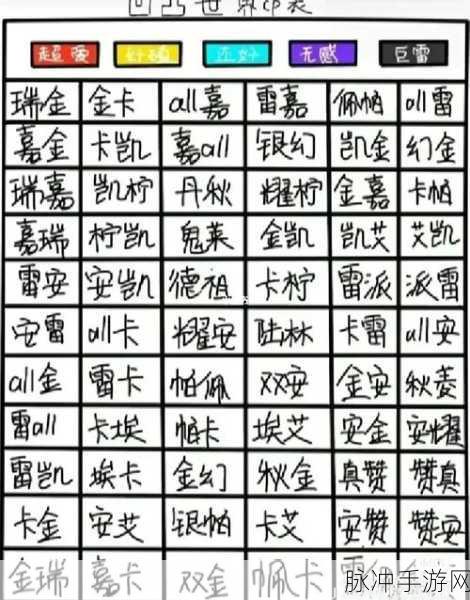 凹凸世界cp表
超爱 好磕 还好 无感 巨雷
瑞金 金卡 all嘉 雷嘉 佩帕 all雷
嘉金 卡凯 嘉all 银幻 凯金 幻金
瑞嘉 凯柠 丹秋 耀柠 金嘉 卡帕
嘉瑞 柠凯 鬼莱 金凯 凯艾 艾凯
雷安 安凯 德祖 卡柠 雷派 派雷
安雷 all卡 耀安 陆林 卡雷 all安
all金 雷卡 帕佩 双安 金安 秋菱
雷all 卡埃 帕卡 埃艾 安金 安耀
雷凯 埃卡 金幻 秋金 真赞 赞真
卡金 安艾 银帕 卡艾 安赞 赞安
金瑞 嘉卡 双金 佩卡
脉冲手游网